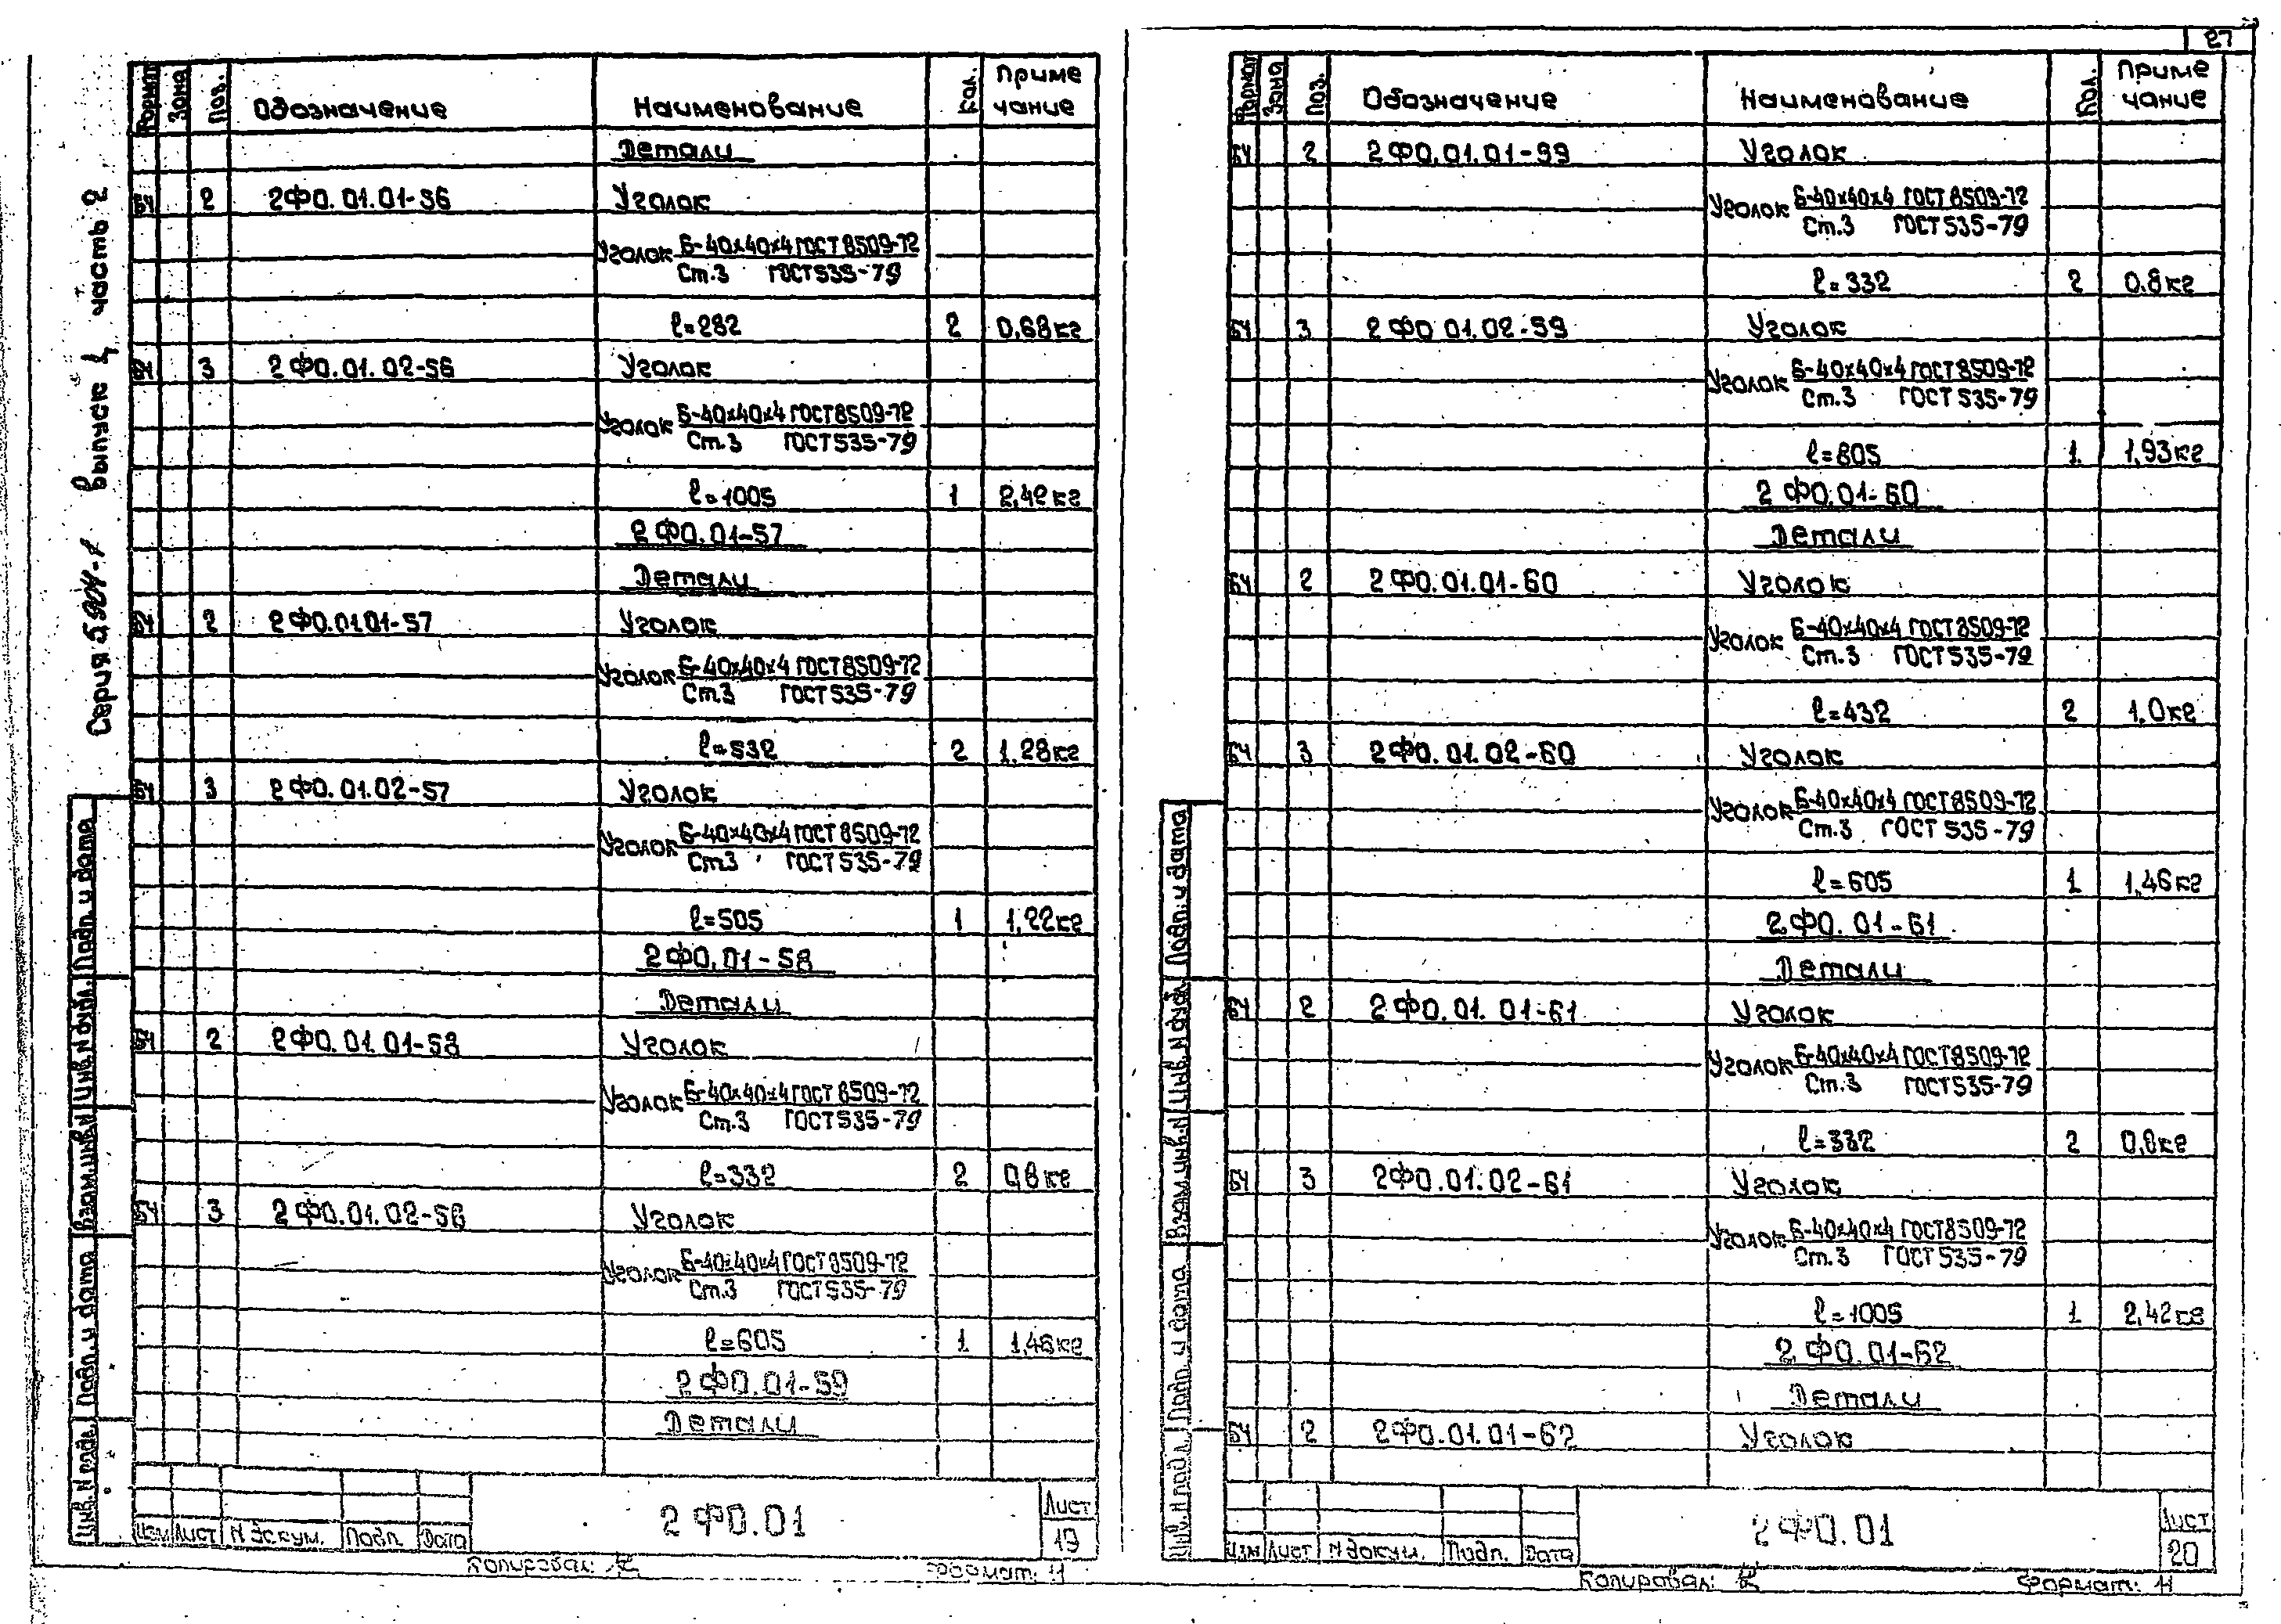 27
Серия 5.904-1 выпуск 1, часть 2
Формат Зона Поз. Обозначение Наименование Кол. Примечание
Детали
БЧ 2 2ФО.01.01-56 Уголок
Уголок Б-40х40х4 ГОСТ 8509-72
Ст.3 ГОСТ 535-79
ℓ=282 2 0,68кг
БЧ 3 2ФО.01.02-56 Уголок
Уголок Б-40х40х4 ГОСТ 8509-72
Ст.3 ГОСТ 535-79
ℓ=1005 1 2,42кг
2ФО.01-57
Детали
БЧ 2 2ФО.01.01-57 Уголок
Уголок Б-40х40х4 ГОСТ 8509-72
Ст.3 ГОСТ 535-79
ℓ=532 2 1,28кг
БЧ 3 2ФО.01.02-57 Уголок
Уголок Б-40х40х4 ГОСТ 8509-72
Ст3 ГОСТ 535-79
ℓ=505 1 1,22кг
2ФО.01-58
Детали
БЧ 2 2ФО.01.01-58 Уголок
Уголок Б-40х40х4 ГОСТ 8509-72
Ст.3 ГОСТ 535-79
ℓ=332 2 0,8кг
БЧ 3 2ФО.01.02-58 Уголок
Уголок Б-40х40х4 ГОСТ 8509-72
Ст.3 ГОСТ 535-79
ℓ=605 1 1,46кг
2ФО.01-59
Детали
Инв. N подл. Подп. и дата Взам. инв. N Инв. N дубл. Подп. и дата
Изм Лист N докум. Подп. Дата
2ФО.01
Лист
19
Копировал: Формат: 11
Формат Зона Поз. Обозначение Наименование Кол. Примечание
БЧ 2 2ФО.01.01-59 Уголок
Уголок Б-40х40х4 ГОСТ 8509-72
Ст.3 ГОСТ 535-79
ℓ=332 2 0,8кг
БЧ 3 2ФО.01.02-59 Уголок
Уголок Б-40х40х4 ГОСТ 8509-72
Ст.3 ГОСТ 535-79
ℓ=805 1 1,93кг
2ФО.01-60
Детали
БЧ 2 2ФО.01.01-60 Уголок
Уголок Б-40х40х4 ГОСТ 8509-72
Ст.3 ГОСТ 535-79
ℓ=432 2 1,0кг
БЧ 3 2ФО.01.02-60 Уголок
Уголок Б-40х40х4 ГОСТ 8509-72
Ст.3 ГОСТ 535-79
ℓ=605 1 1,46кг
2ФО.01-61
Детали
БЧ 2 2ФО.01.01-61 Уголок
Уголок Б-40х40х4 ГОСТ 8509-72
Ст.3 ГОСТ 535-79
ℓ=332 2 0,8кг
БЧ 3 2ФО.01.02-61 Уголок
Уголок Б-40х40х4 ГОСТ 8509-72
Ст.3 ГОСТ 535-79
ℓ=1005 1 2,42кг
2ФО.01-62
Детали
БЧ 2 2ФО.01.01-62 Уголок
Инв. N подл. Подп. и дата Взам. инв. N Инв. N дубл. Подп. и дата
Изм Лист N докум. Подп. Дата
2ФО.01
Лист
20
Копировал: Формат: 11